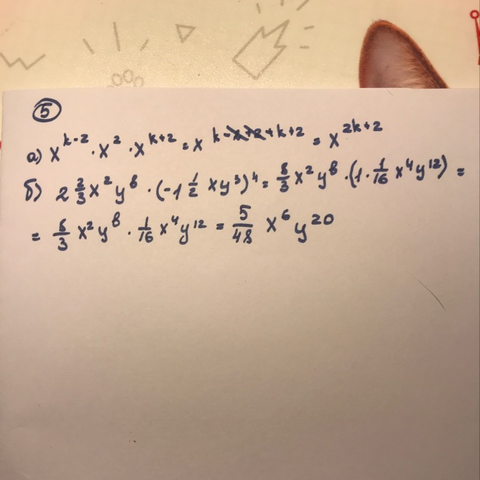 5
а) x^{k-2} · x^2 · x^{k+2} = x^{k-2+2+k+2} = x^{2k+2}
б) 2 2/3 x^2 y^8 · (-1 1/2 xy^3)^4 = 8/3 x^2 y^8 · (1 · 1/16 x^4 y^{12}) =
= 8/3 x^2 y^8 · 1/16 x^4 y^{12} = 5/48 x^6 y^{20}